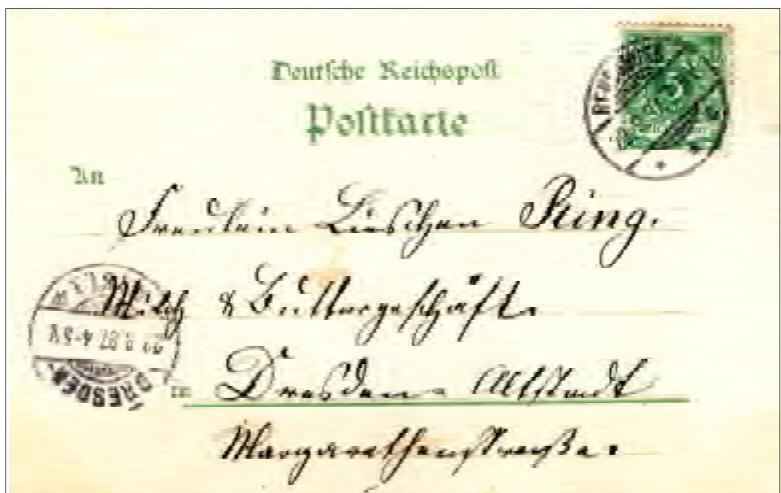 Deutsche Reichspost
Postkarte
An
Fräulein Lieschen Ring.
Milch & Buttergeschäft.
in Dresden-Altstadt
Margarethenstraße.
DRESDEN